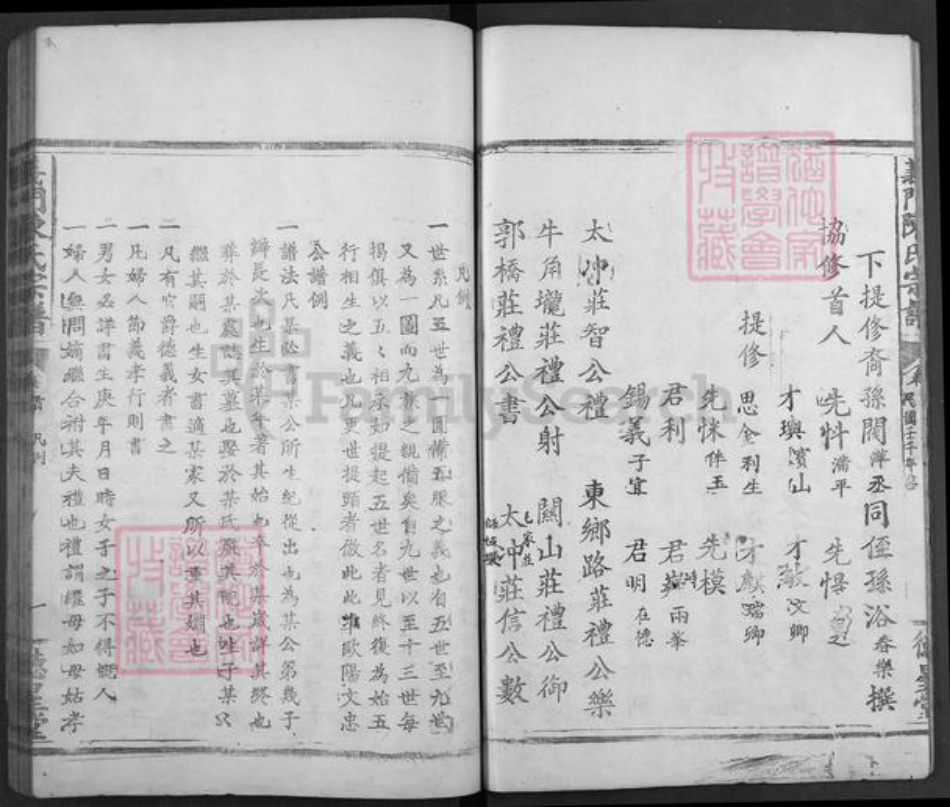 義門陳氏宗譜
民國壬午年
下提修裔孫閣萍丞同侄孫浴春樂撰
協修首人 先 滿平 先
才璵濱仙 才 文卿
提修 思金利生 才麒瑞卿
先 伴玉 先模
君利 君 雨峯
錫義子宜 君明在德
太冲莊智公禮 東鄉路莊禮公樂
牛角壠莊禮公射 關山莊禮公御
郭橋莊禮公書 太冲莊信公數
凡例
一世系凡五世為一圖備五服之義也自五世至九世
又為一圖而九族之親備矣自九世以至十三世每
揭俱以五人相承如提起五世名者見終復為始五
行相生之義也凡更世提頭者倣此此準歐陽文忠
公譜例
一譜法凡某公書某公所生紀從出也為某公第幾子
辨是次也生於某年著其始也卒於某歲詳其終也
葬於某處誌其墓也娶於某氏 其 也 子某
繼其嗣也生女書適某家又所以重其婣也
一凡有官爵德義者書之
一凡婦人節義孝行則書
一男女必詳書生庚年月日時女子之子不得概入
一婦人無問嫡繼合祔其夫禮也禮謂繼母如母姑孝
義門陳氏宗譜
凡例
一
德星堂